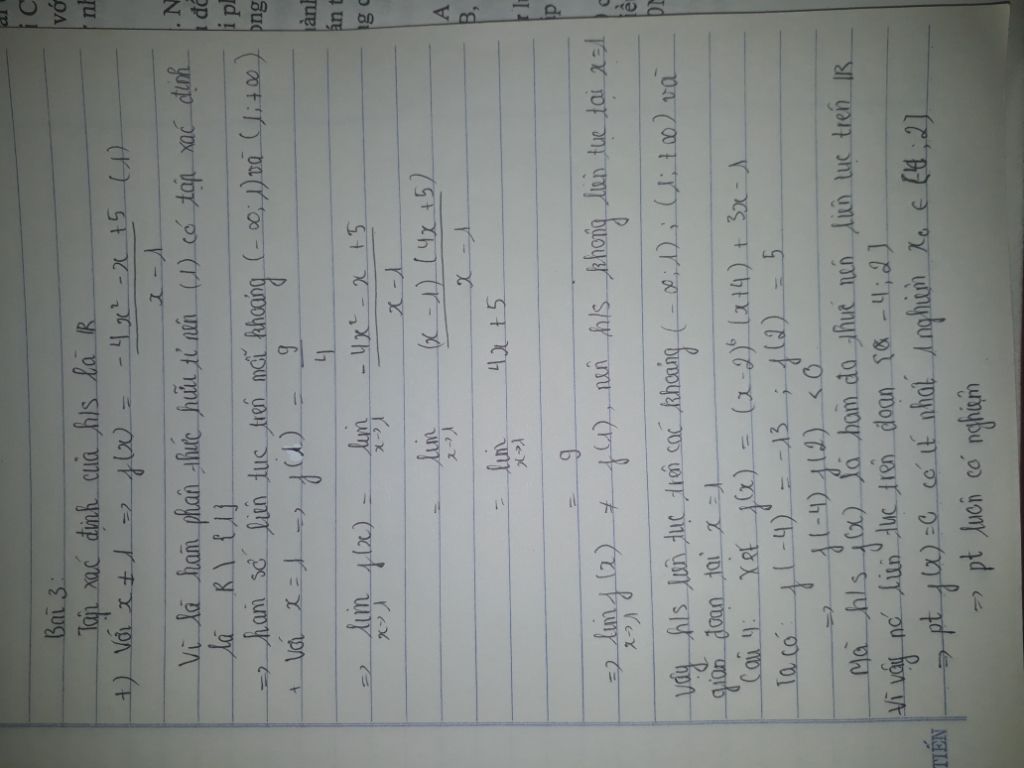 Bài 3:
Tập xác định của h/s là R
+) Với x ± 1 => f(x) = -4x² - x + 5 (1)
x - 1
Vì là hàm phân thức hữu tỉ nên (1) có tập xác định
là R \ {1}
=> hàm số liên tục trên mỗi khoảng (-∞; 1) và (1; +∞)
+ Với x = 1 => f(1) = 9
4
=> lim f(x) = lim -4x² - x + 5
x->1 x->1 x - 1
= lim (x - 1) (4x + 5)
x->1 x - 1
= lim 4x + 5
x->1
= 9
=> lim f(x) ≠ f(1), nên h/s không liên tục tại x = 1
x->1
Vậy h/s liên tục trên các khoảng (-∞; 1); (1; +∞) và
gián đoạn tại x = 1
Câu 4: xét f(x) = (x-2)⁶ (x+4) + 3x - 1
Ta có: f(-4) = -13 ; f(2) = 5
=> f(-4) f(2) < 0
Mà h/s f(x) là hàm đa thức nên liên tục trên R
Vì vậy nó liên tục trên đoạn [-4; 2]
=> pt f(x) = 0 có ít nhất 1 nghiệm x₀ ∈ ; 2]
=> pt luôn có nghiệm
TIẾN